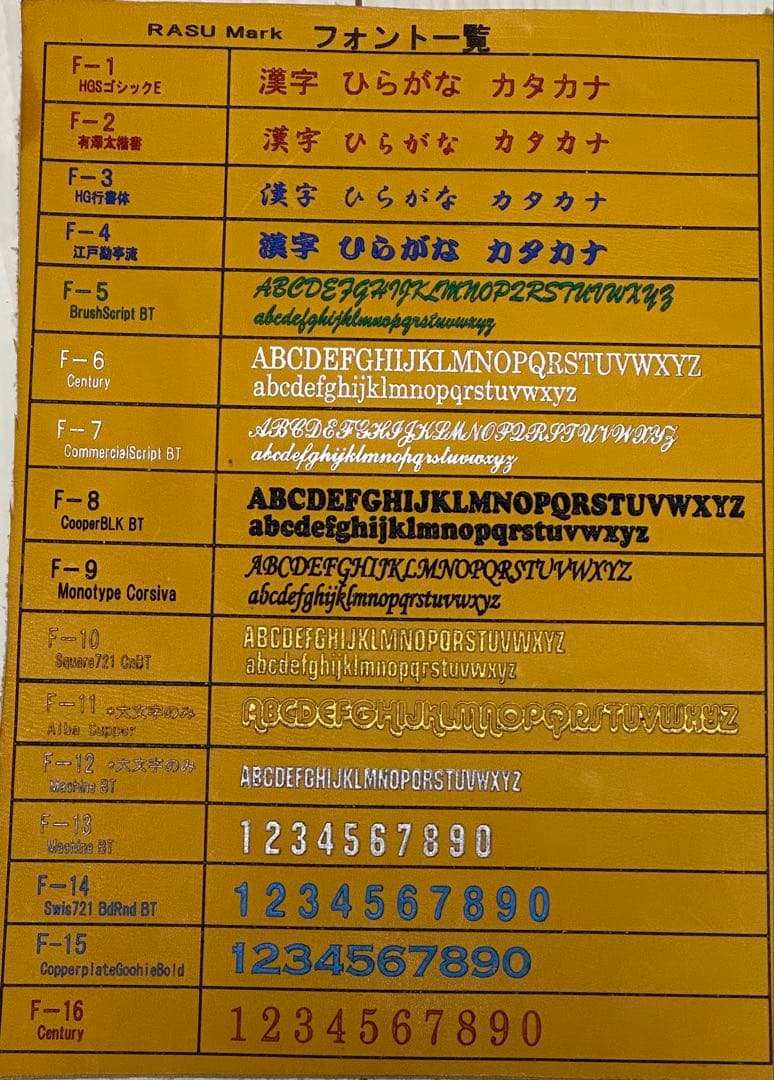 RASU Mark フォント一覧
F-1 漢字 ひらがな カタカナ
HGSゴシックE
F-2 漢字 ひらがな カタカナ
有澤太楷書
F-3 漢字 ひらがな カタカナ
HG行書体
F-4 漢字 ひらがな カタカナ
江戸勘亭流
F-5 ABCDEFGHIJKLMNOPQRSTUVWXYZ
BrushScript BT abcdefghijklmnopqrstuvwxyz
F-6 ABCDEFGHIJKLMNOPQRSTUVWXYZ
Century abcdefghijklmnopqrstuvwxyz
F-7 ABCDEFGHIJKLMNOPQRSTUVWXYZ
CommercialScript BT abcdefghijklmnopqrstuvwxyz
F-8 ABCDEFGHIJKLMNOPQRSTUVWXYZ
CooperBLK BT abcdefghijklmnopqrstuvwxyz
F-9 ABCDEFGHIJKLMNOPQRSTUVWXYZ
Monotype Corsiva abcdefghijklmnopqrstuvwxyz
F-10 ABCDEFGHIJKLMNOPQRSTUVWXYZ
Square721 CnBT abcdefghijklmnopqrstuvwxyz
F-11 *大文字のみ ABCDEFGHIJKLMNOPQRSTUVWXYZ
Alba Supper
F-12 *大文字のみ ABCDEFGHIJKLMNOPQRSTUVWXYZ
Machine BT
F-13 1234567890
Machine BT
F-14 1234567890
Swis721 BdRnd BT
F-15 1234567890
CopperplateGoohieBold
F-16 1234567890
Century